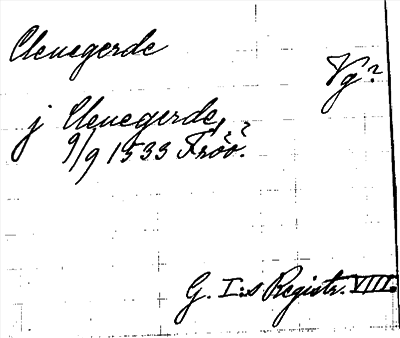 Clenegerde
Vg?
j Clenegerde,
9/9 1533 Fröö.??
G. I:s Registr. VIII.